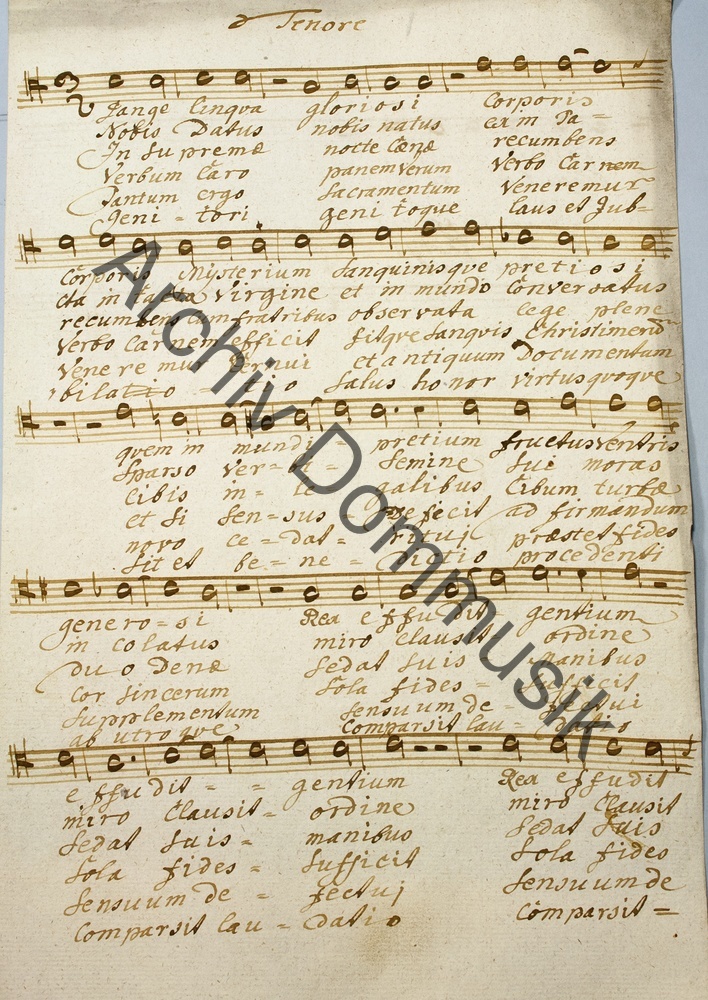 Tenore
Pange lingva gloriosi Corporis
Nobis Datus nobis natus ex in Ta=
In supremæ nocte Cænæ recumbens
Verbum Caro panem Verum Verbo Carnem
Tantum ergo Sacramentum Veneremur
Geni=tori genitoque laus et Jub=
Corporis Mysterium Sanquinisque pretiosi
cta intacta Virgine et in mundo Conversatus
recumbens cum fratribus observata lege plene
Verbo Carnem efficit fitque Sanguis Christi
Veneremur Cernui et antiquum Documentum
bilatio = tio Salus honor virtus quoque
quem in mundi = pretium fructus ventris
Sparso ver=bi = Semine Sui moras
cibis in= le galibus Cibum turbæ
et Si Sen=sus = Defecit ad firmandum
novo ce=dat= ritui præstet fides
Sit et be=ne= dictio procedenti
genero=si Rex effudit gentium
in colatus miro Clausit ordine
duo Denæ Sedat Suis Manibus
Cor Sincerum Sola fides= Sufficit
Supplementum Sensuum de= fectui
ab utroque Comparsit lau=datio
effudit= = gentium Rex effudit
miro Clausit= ordine miro Clausit
Sedat Suis= manibus Sedat Suis
Sola fides= Sufficit Sola fides
Sensuum de= fectuj Sensuum de
Comparsit lau=datio Comparsit=
Archiv Dommusik